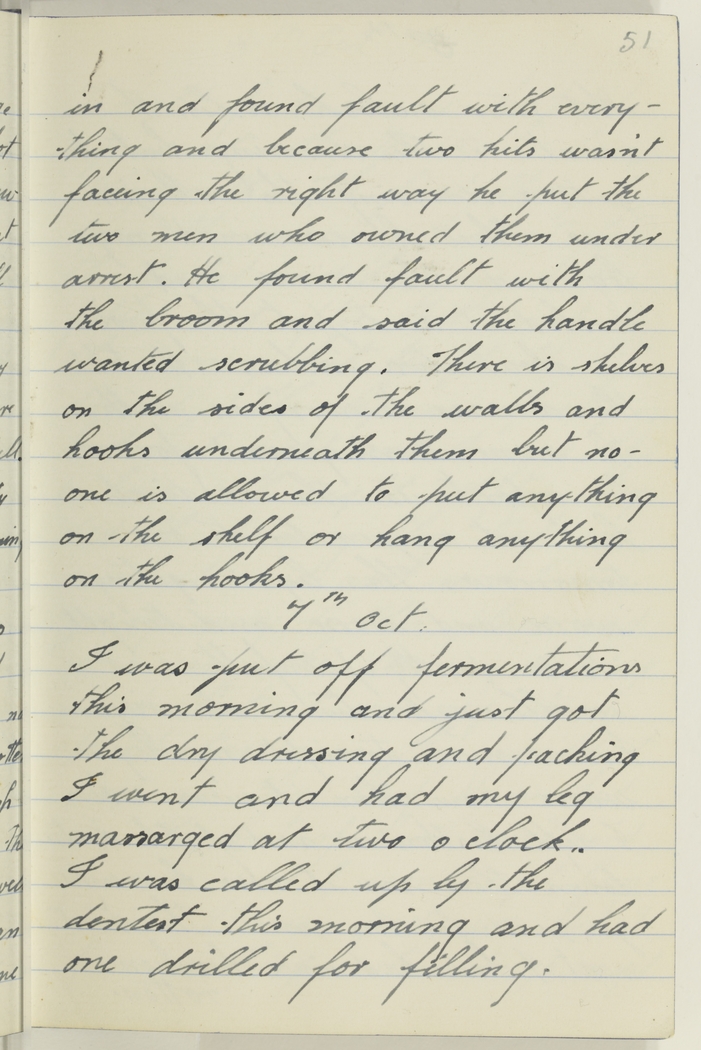 51
in and found fault with every-
thing and because two kits wasn't
facing the right way he put the
two men who owned them under
arrest. He found fault with
the broom and said the handle
wanted scrubbing. There is shelves
on the sides of the walls and
hooks underneath them but no-
one is allowed to put anything
on the shelf or hang anything
on the hooks.
7TH Oct.
I was put off fermentations
this morning and just got
the dry dressing and packing
I went and had my leg
massarged at two o clock..
I was called up by the
dentest this morning and had
one drilled for filling.